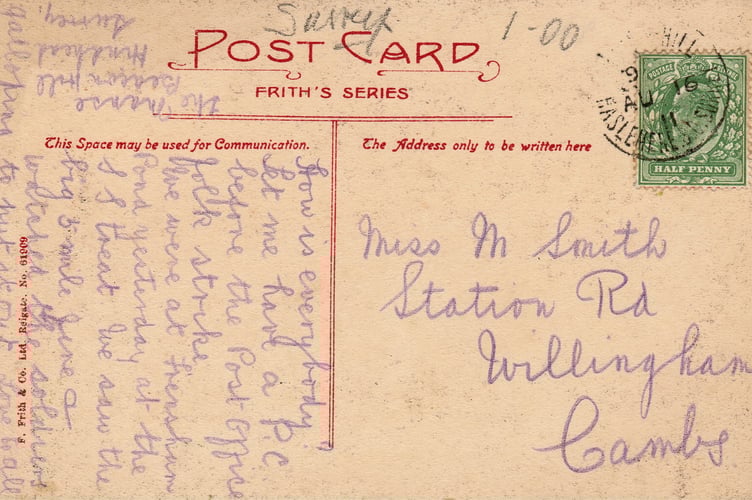 Surrey
1-00
POST CARD
FRITH'S SERIES
This Space may be used for Communication.
The Address only to be written here
POSTAGE
HALF PENNY
HILL
9
AU 16
11
HASLEMERE
The Manse
Beacon Hill
Hindhead
Surrey
How is everybody.
Let me have a P.C
before the Post Office
folk strike.
We were at Frensham
Pond yesterday at the
S S treat We saw the
big 5 mile fire &
watched the soldiers
galloping to put it out Love to all
Miss M Smith
Station Rd
Willingham
Cambs
F. Frith & Co. Ltd. Reigate. No. 61909